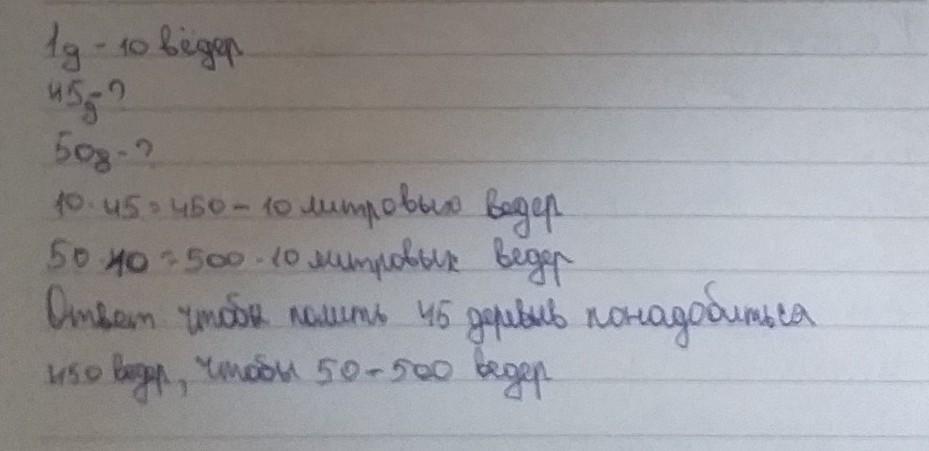 1д - 10 вёдер
45д-?
50д-?
10·45=450-10 литровых ведер
50·10=500-10 литровых ведер
Ответ чтобы полить 45 деревьев понадобиться
450 ведер, чтобы 50-500 ведер